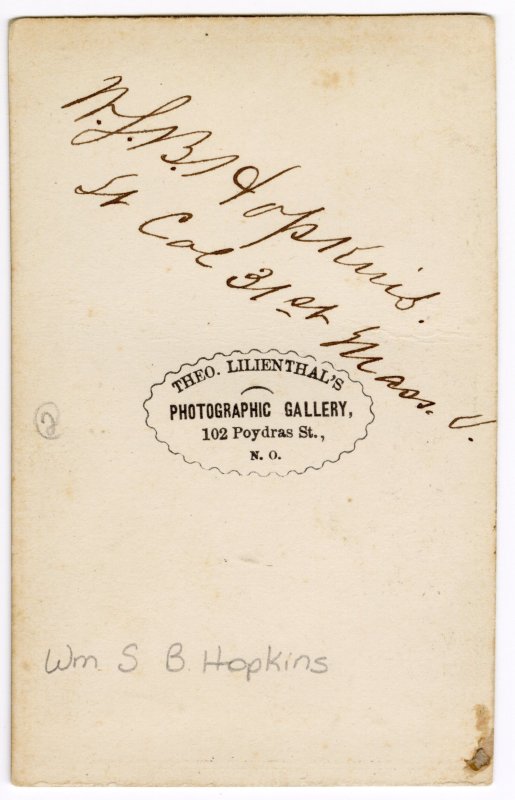 W. S. B. Hopkins.
Lt Col 31st Mass. V.
THEO. LILIENTHAL'S
PHOTOGRAPHIC GALLERY,
102 Poydras St.,
N. O.
2
Wm S B Hopkins